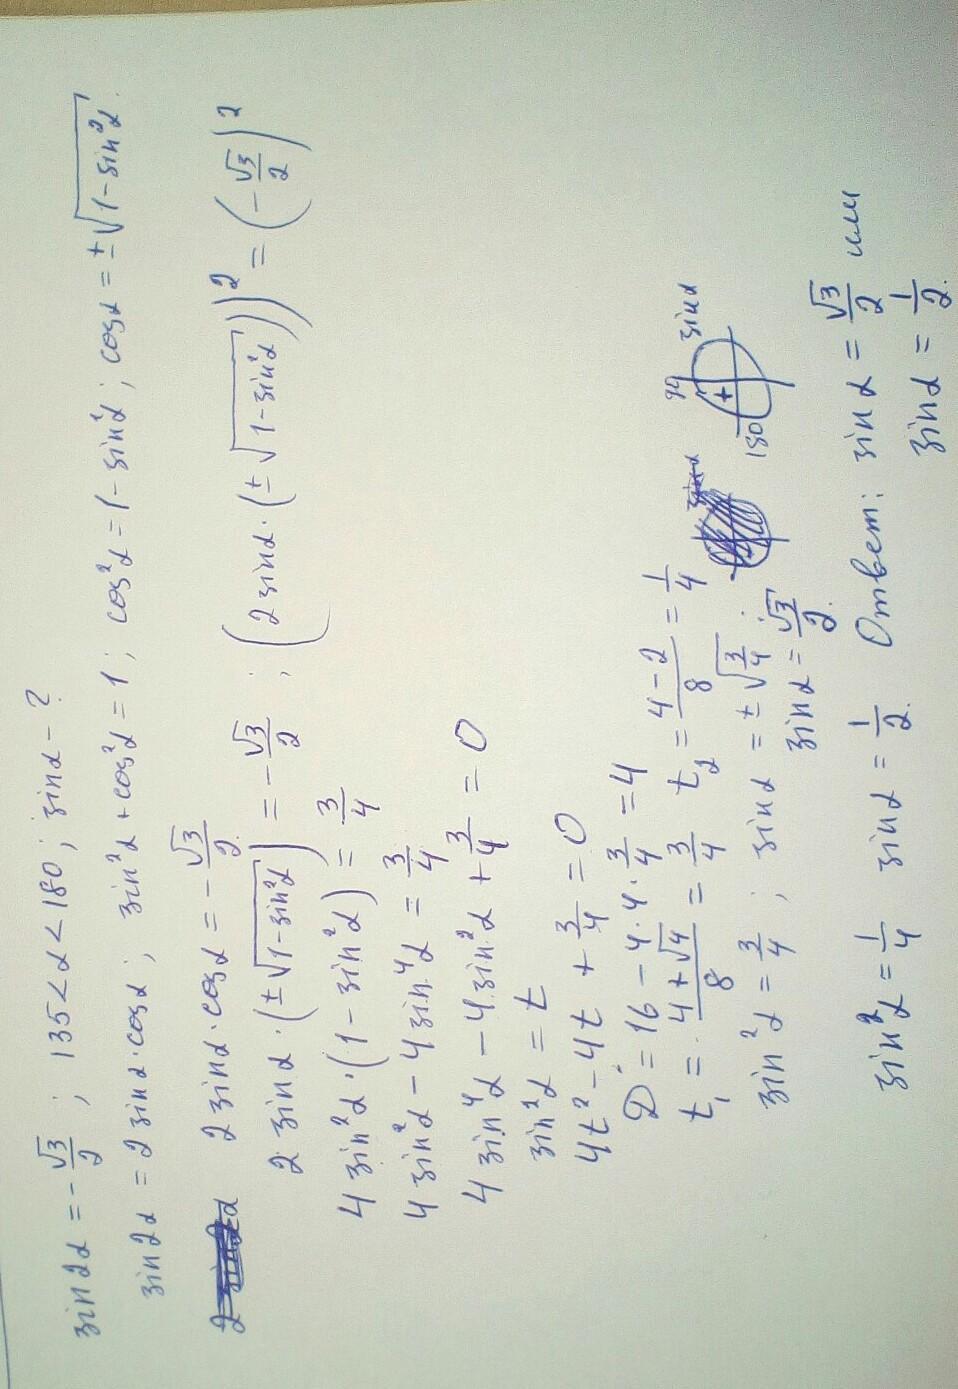 sin2α = -√3/2 ; 135<α<180; sinα - ?
sin2α = 2sinα·cosα ; sin²α+cos²α=1; cos²α=1-sin²α; cosα=±√(1-sin²α).
2 sinα·cosα = -√3/2
2·sinα·(±√(1-sin²α)) = -√3/2 ; (2sinα·(±√(1-sin²α)))² = (-√3/2)²
4 sin²α·(1-sin²α) = 3/4
4 sin²α - 4 sin⁴α = 3/4
4 sin⁴α - 4 sin²α + 3/4 = 0
sin²α = t
4t² - 4t + 3/4 = 0
D = 16 - 4·4·3/4 = 4
t₁ = (4+√4)/8 = 3/4 t₂ = (4-2)/8 = 1/4
90 sinα
180 +
sin²α = 3/4 ; sinα = ±√(3/4) ;
sinα = √3/2.
sin²α = 1/4 sinα = 1/2. Ответ: sinα = √3/2 или
sinα = 1/2.